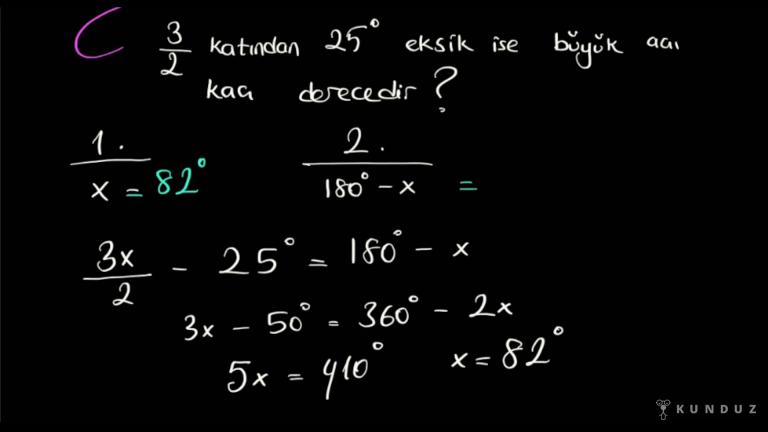 3/2 katından 25° eksik ise büyük açı
kaç derecedir?
1. 2.
x = 82° 180° - x =
3x/2 - 25° = 180° - x
3x - 50° = 360° - 2x
5x = 410° x = 82°
KUNDUZ